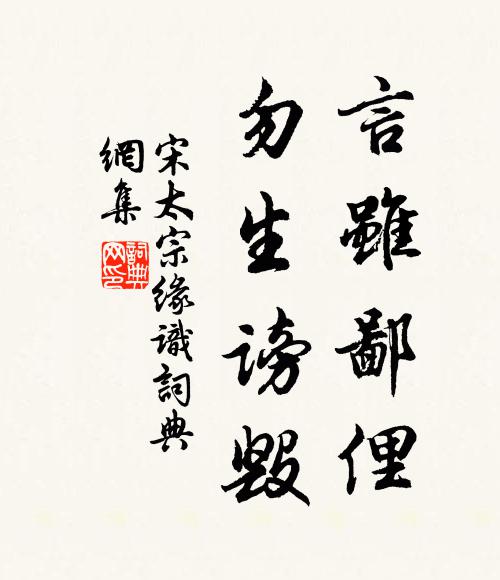 言雖鄙俚
勿生謗毀
宋太宗緣識詞典
網集
詞典
网印